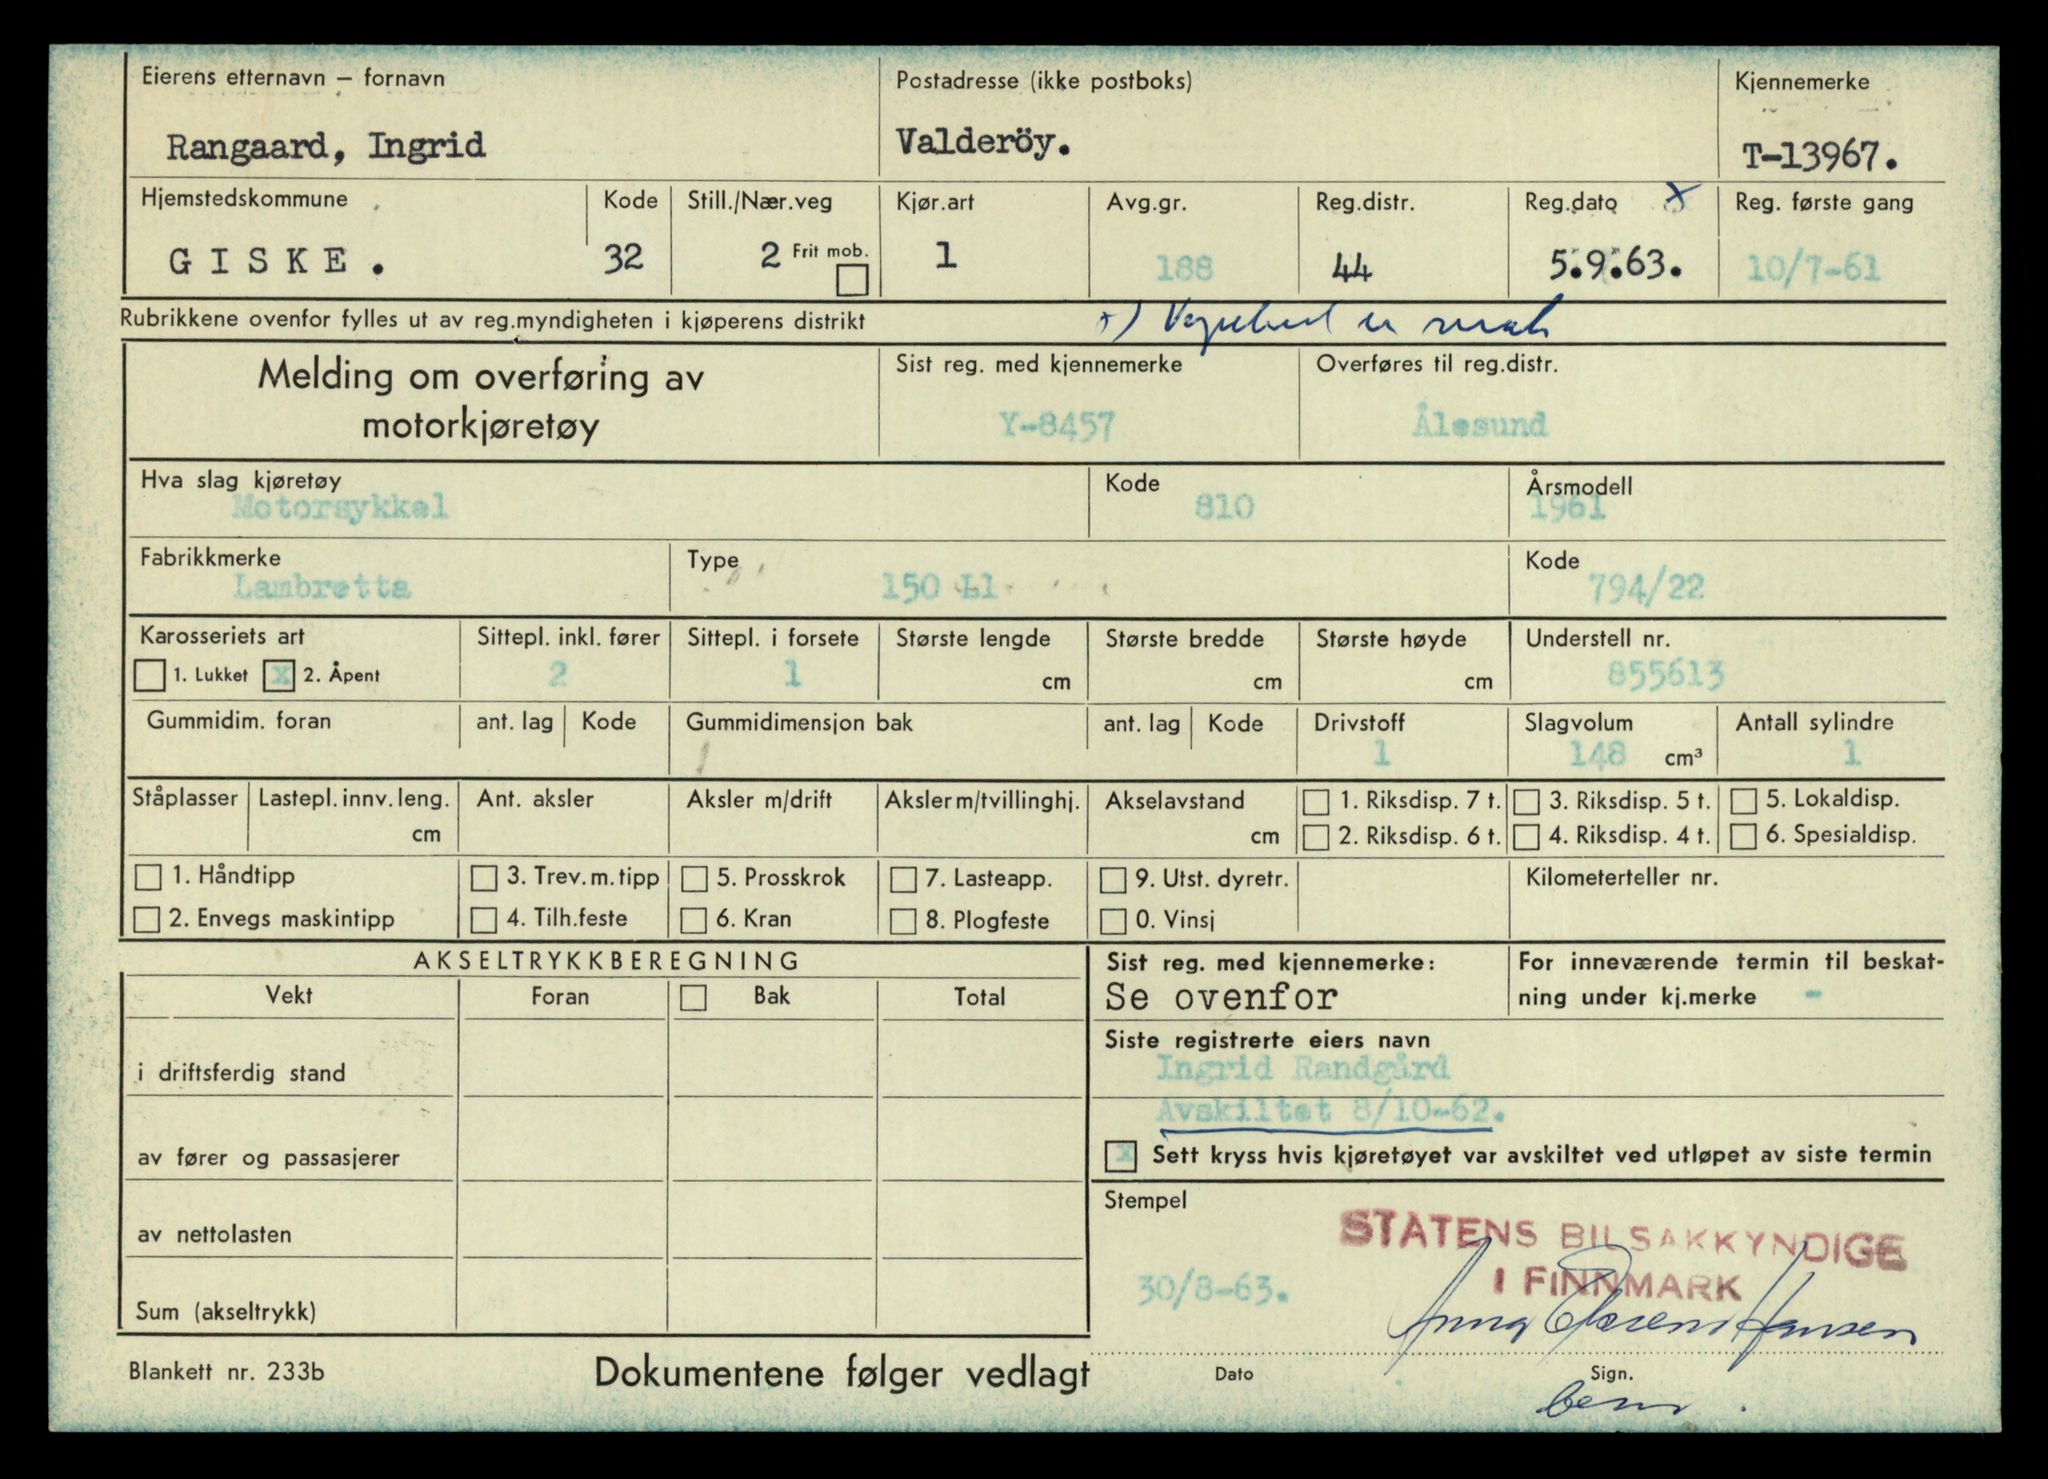 Eierens etternavn – fornavn Postadresse (ikke postboks) Kjennemerke
Rangaard, Ingrid Valderöy. T-13967.
Hjemstedskommune Kode Still./Nær.veg Kjør.art Avg.gr. Reg.distr. Reg.dato x Reg. første gang
GISKE. 32 2 Frit mob. 1 188 44 5.9.63. 10/7-61
Rubrikkene ovenfor fylles ut av reg.myndigheten i kjøperens distrikt x)
Melding om overføring av Sist reg. med kjennemerke Overføres til reg.distr.
motorkjøretøy Y-8457 Ålesund
Hva slag kjøretøy Kode Årsmodell
Motorsykkel 810 1961
Fabrikkmerke Type Kode
Lambretta 150 L1 794/22
Karosseriets art Sittepl. inkl. fører Sittepl. i forsete Største lengde Største bredde Største høyde Understell nr.
1. Lukket x 2. Åpent 2 1 cm cm cm 855613
Gummidim. foran ant. lag Kode Gummidimensjon bak ant. lag Kode Drivstoff Slagvolum Antall sylindre
1 148 cm³ 1
Ståplasser Lastepl. innv. leng. Ant. aksler Aksler m/drift Aksler m/tvillinghj. Akselavstand 1. Riksdisp. 7 t. 3. Riksdisp. 5 t. 5. Lokaldisp.
cm cm 2. Riksdisp. 6 t. 4. Riksdisp. 4 t. 6. Spesialdisp.
1. Håndtipp 3. Trev. m. tipp 5. Prosskrok 7. Lasteapp. 9. Utst. dyretr. Kilometerteller nr.
2. Envegs maskintipp 4. Tilh.feste 6. Kran 8. Plogfeste 0. Vinsj
AKSELTRYKKBEREGNING Sist reg. med kjennemerke: For inneværende termin til beskat-
Vekt Foran Bak Total Se ovenfor ning under kj.merke -
Siste registrerte eiers navn
i driftsferdig stand Ingrid Randgård
Avskiltet 8/10-62.
av fører og passasjerer x Sett kryss hvis kjøretøyet var avskiltet ved utløpet av siste termin
Stempel
av nettolasten STATENS BILSAKKYNDIGE
30/8-63. I FINNMARK
Sum (akseltrykk) Anna Hansen
Blankett nr. 233b Dokumentene følger vedlagt Dato Sign.